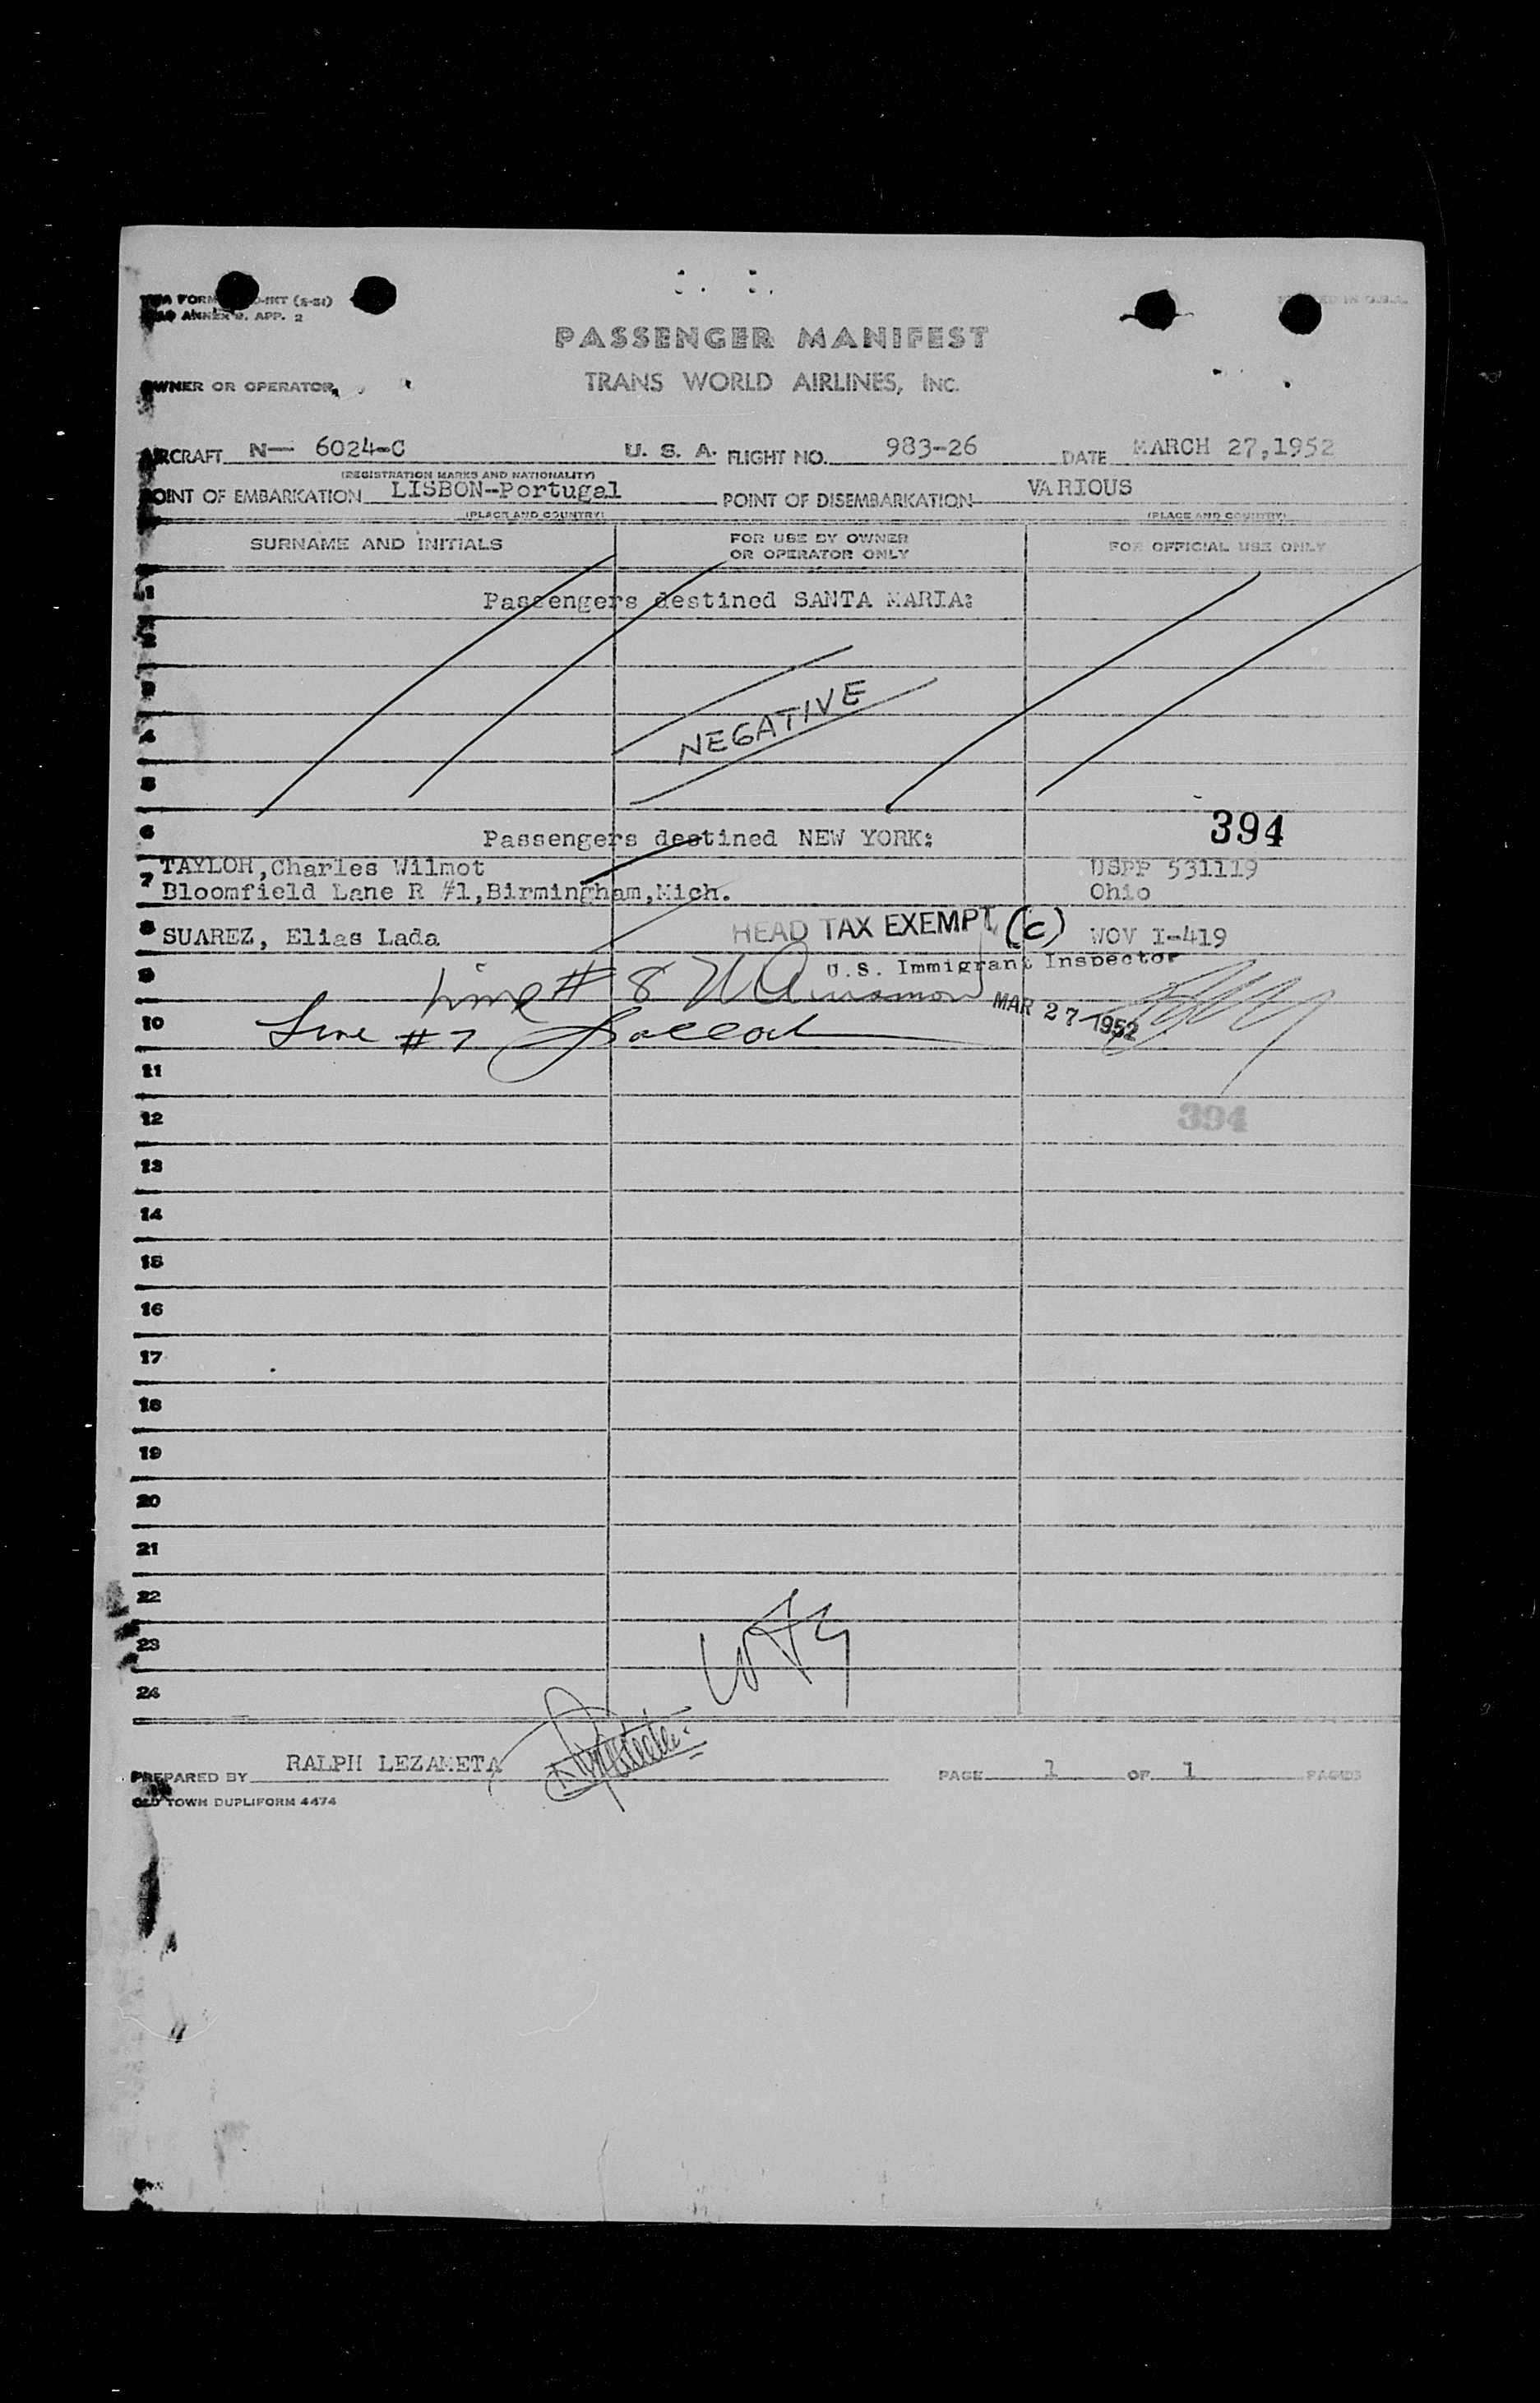 ANNEX 9. APP. 2
PASSENGER MANIFEST
OWNER OR OPERATOR
TRANS WORLD AIRLINES, INC.
AIRCRAFT N— 6024-C U. S. A. FLIGHT NO. 983-26 DATE MARCH 27,1952
(REGISTRATION MARKS AND NATIONALITY)
POINT OF EMBARKATION LISBON--Portugal POINT OF DISEMBARKATION VARIOUS
(PLACE AND COUNTRY) (PLACE AND COUNTRY)
SURNAME AND INITIALS FOR USE BY OWNER OR OPERATOR ONLY FOR OFFICIAL USE ONLY
1 Passengers destined SANTA MARIA:
2
3
4 NEGATIVE
5
6 Passengers destined NEW YORK: 394
7 TAYLOR,Charles Wilmot USPP 531119
Bloomfield Lane R #1,Birmingham,Mich. Ohio
8 SUAREZ, Elias Lada HEAD TAX EXEMPT (c) WOV I-419
9 U.S. Immigrant Inspector
Line # 8
MAR 27 1952
10 Line #7
11
12 394
13
14
15
16
17
18
19
20
21
22
23
24
PREPARED BY RALPH LEZAMETA PAGE 1 OF 1 PAGES
OLD TOWN DUPLIFORM 4474